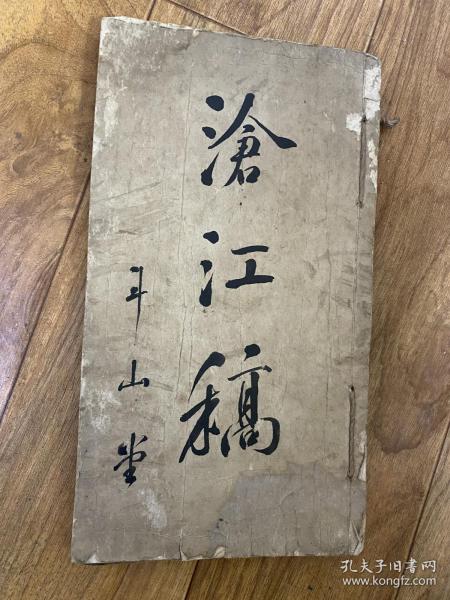 滄江稿
斗山堂
孔夫子旧书网
www.kongfz.com